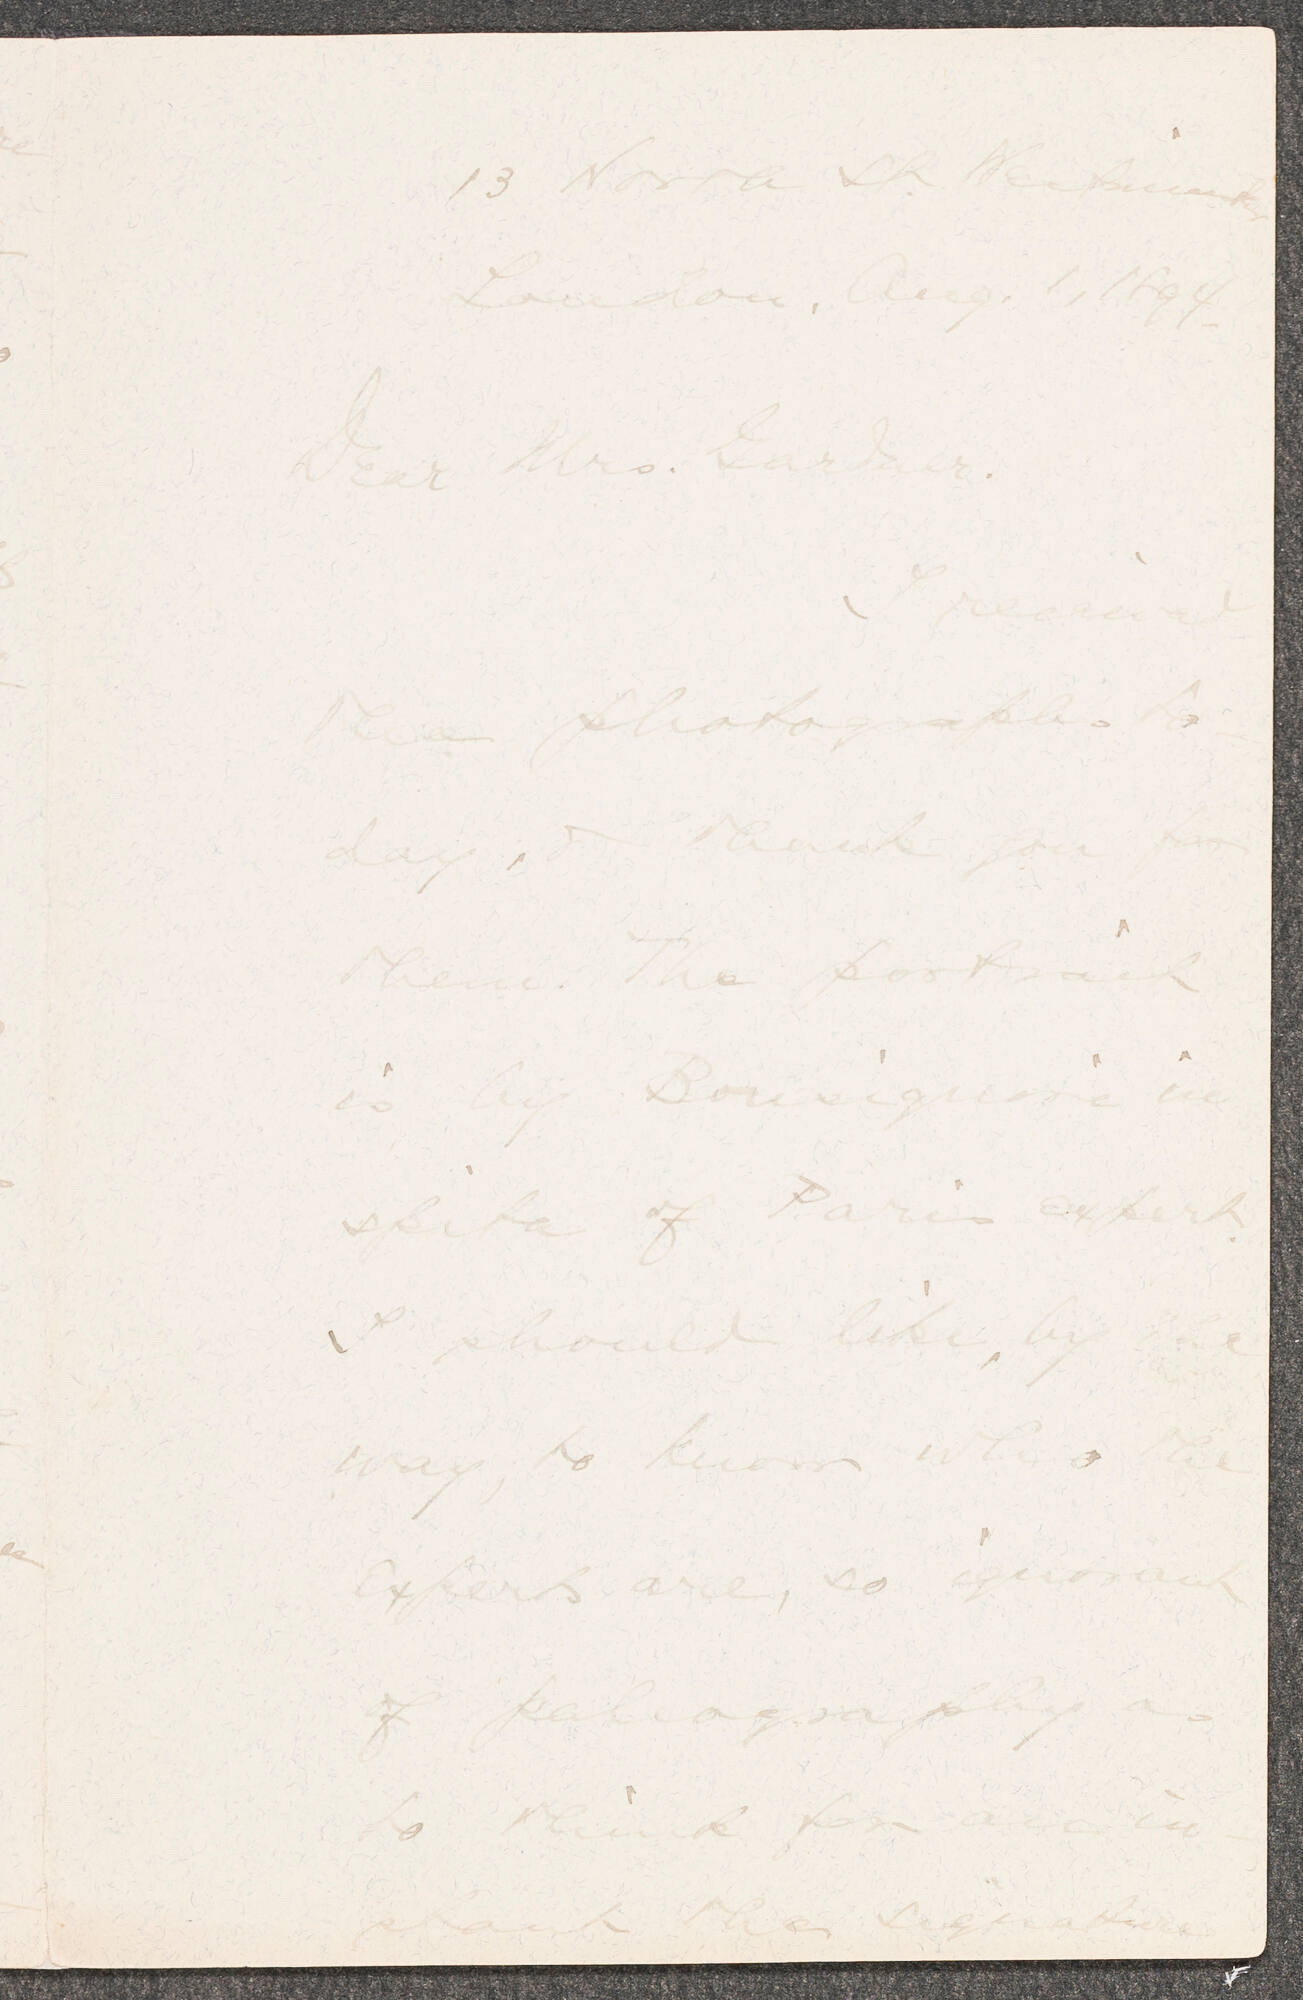 13 North St. Westminster
London, Aug. 1, 1894.
Dear Mrs. Gardner.
I received
the photographs to-
day, & thank you for
them. The portrait
is by Bonsignori in
spite of Paris expert.
I should like, by the
way, to know who the
experts are, so ignorant
of paleography as
to think for an in-
stant the signature